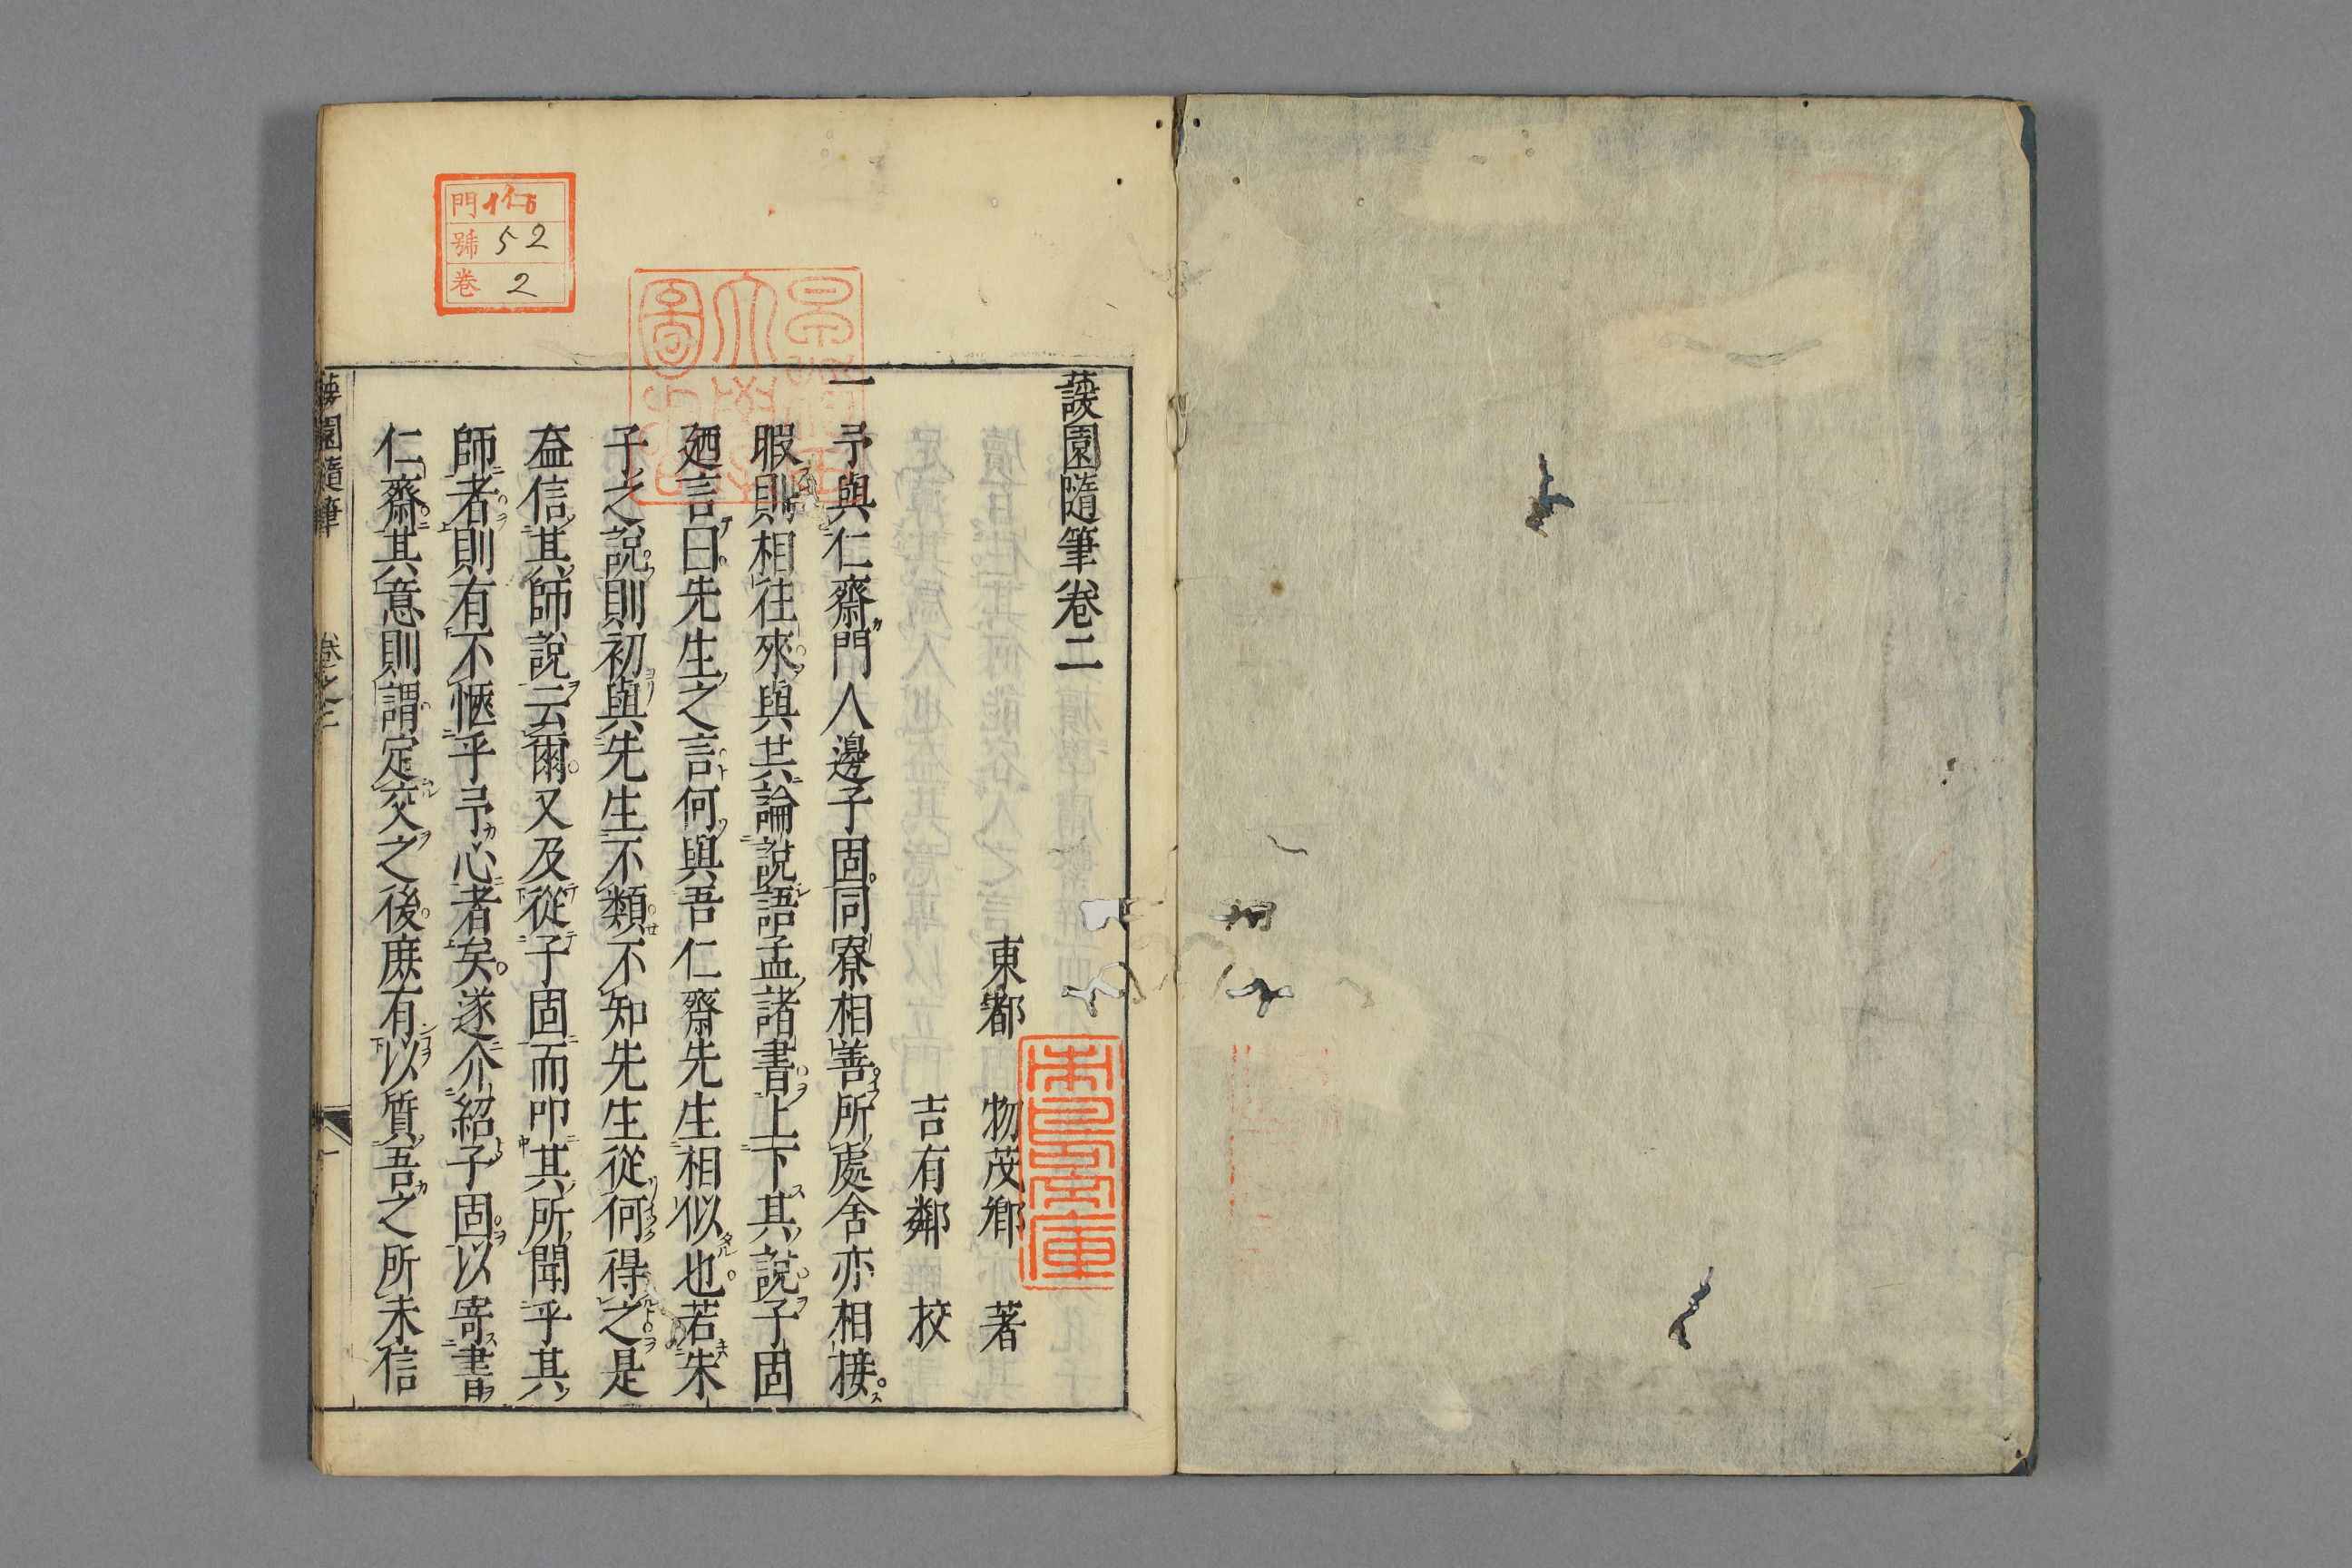 蘐園隨筆卷二
東都　物茂卿　著
吉有鄰　校
一
予與仁齋門人邊子固同寮相善所處舍亦相接
暇則相往來與其論說語孟諸書上下其說子固
廼言曰先生之言何與吾仁齋先生相似也若朱
子之說則初與先生不類不知先生從何得之是
益信其師說云爾又及從子固而叩其所聞乎其
師者則有不愜乎予心者矣遂介紹子固以寄書
仁齋其意則謂定交之後庶有以質吾之所未信
蘐園隨筆
卷之二
一
門 仁 6
號 52
卷 2